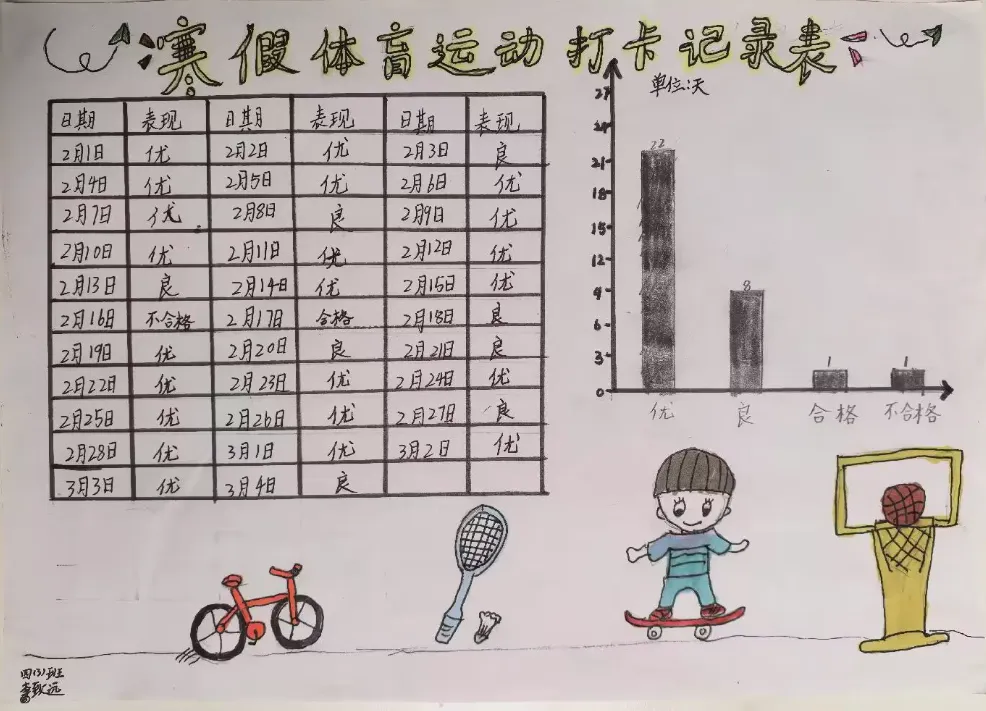 寒假体育运动打卡记录表
日期 表现 日期 表现 日期 表现
2月1日 优 2月2日 优 2月3日 良
2月4日 优 2月5日 优 2月6日 优
2月7日 优 2月8日 良 2月9日 优
2月10日 优 2月11日 优 2月12日 优
2月13日 良 2月14日 优 2月15日 优
2月16日 不合格 2月17日 合格 2月18日 良
2月19日 优 2月20日 良 2月21日 良
2月22日 优 2月23日 优 2月24日 优
2月25日 优 2月26日 优 2月27日 良
2月28日 优 3月1日 优 3月2日 优
3月3日 优 3月4日 良
单位:天
27
24
21
18
15
12
9
6
3
0
22
8
1
1
优 良 合格 不合格
四(3)班
李致远